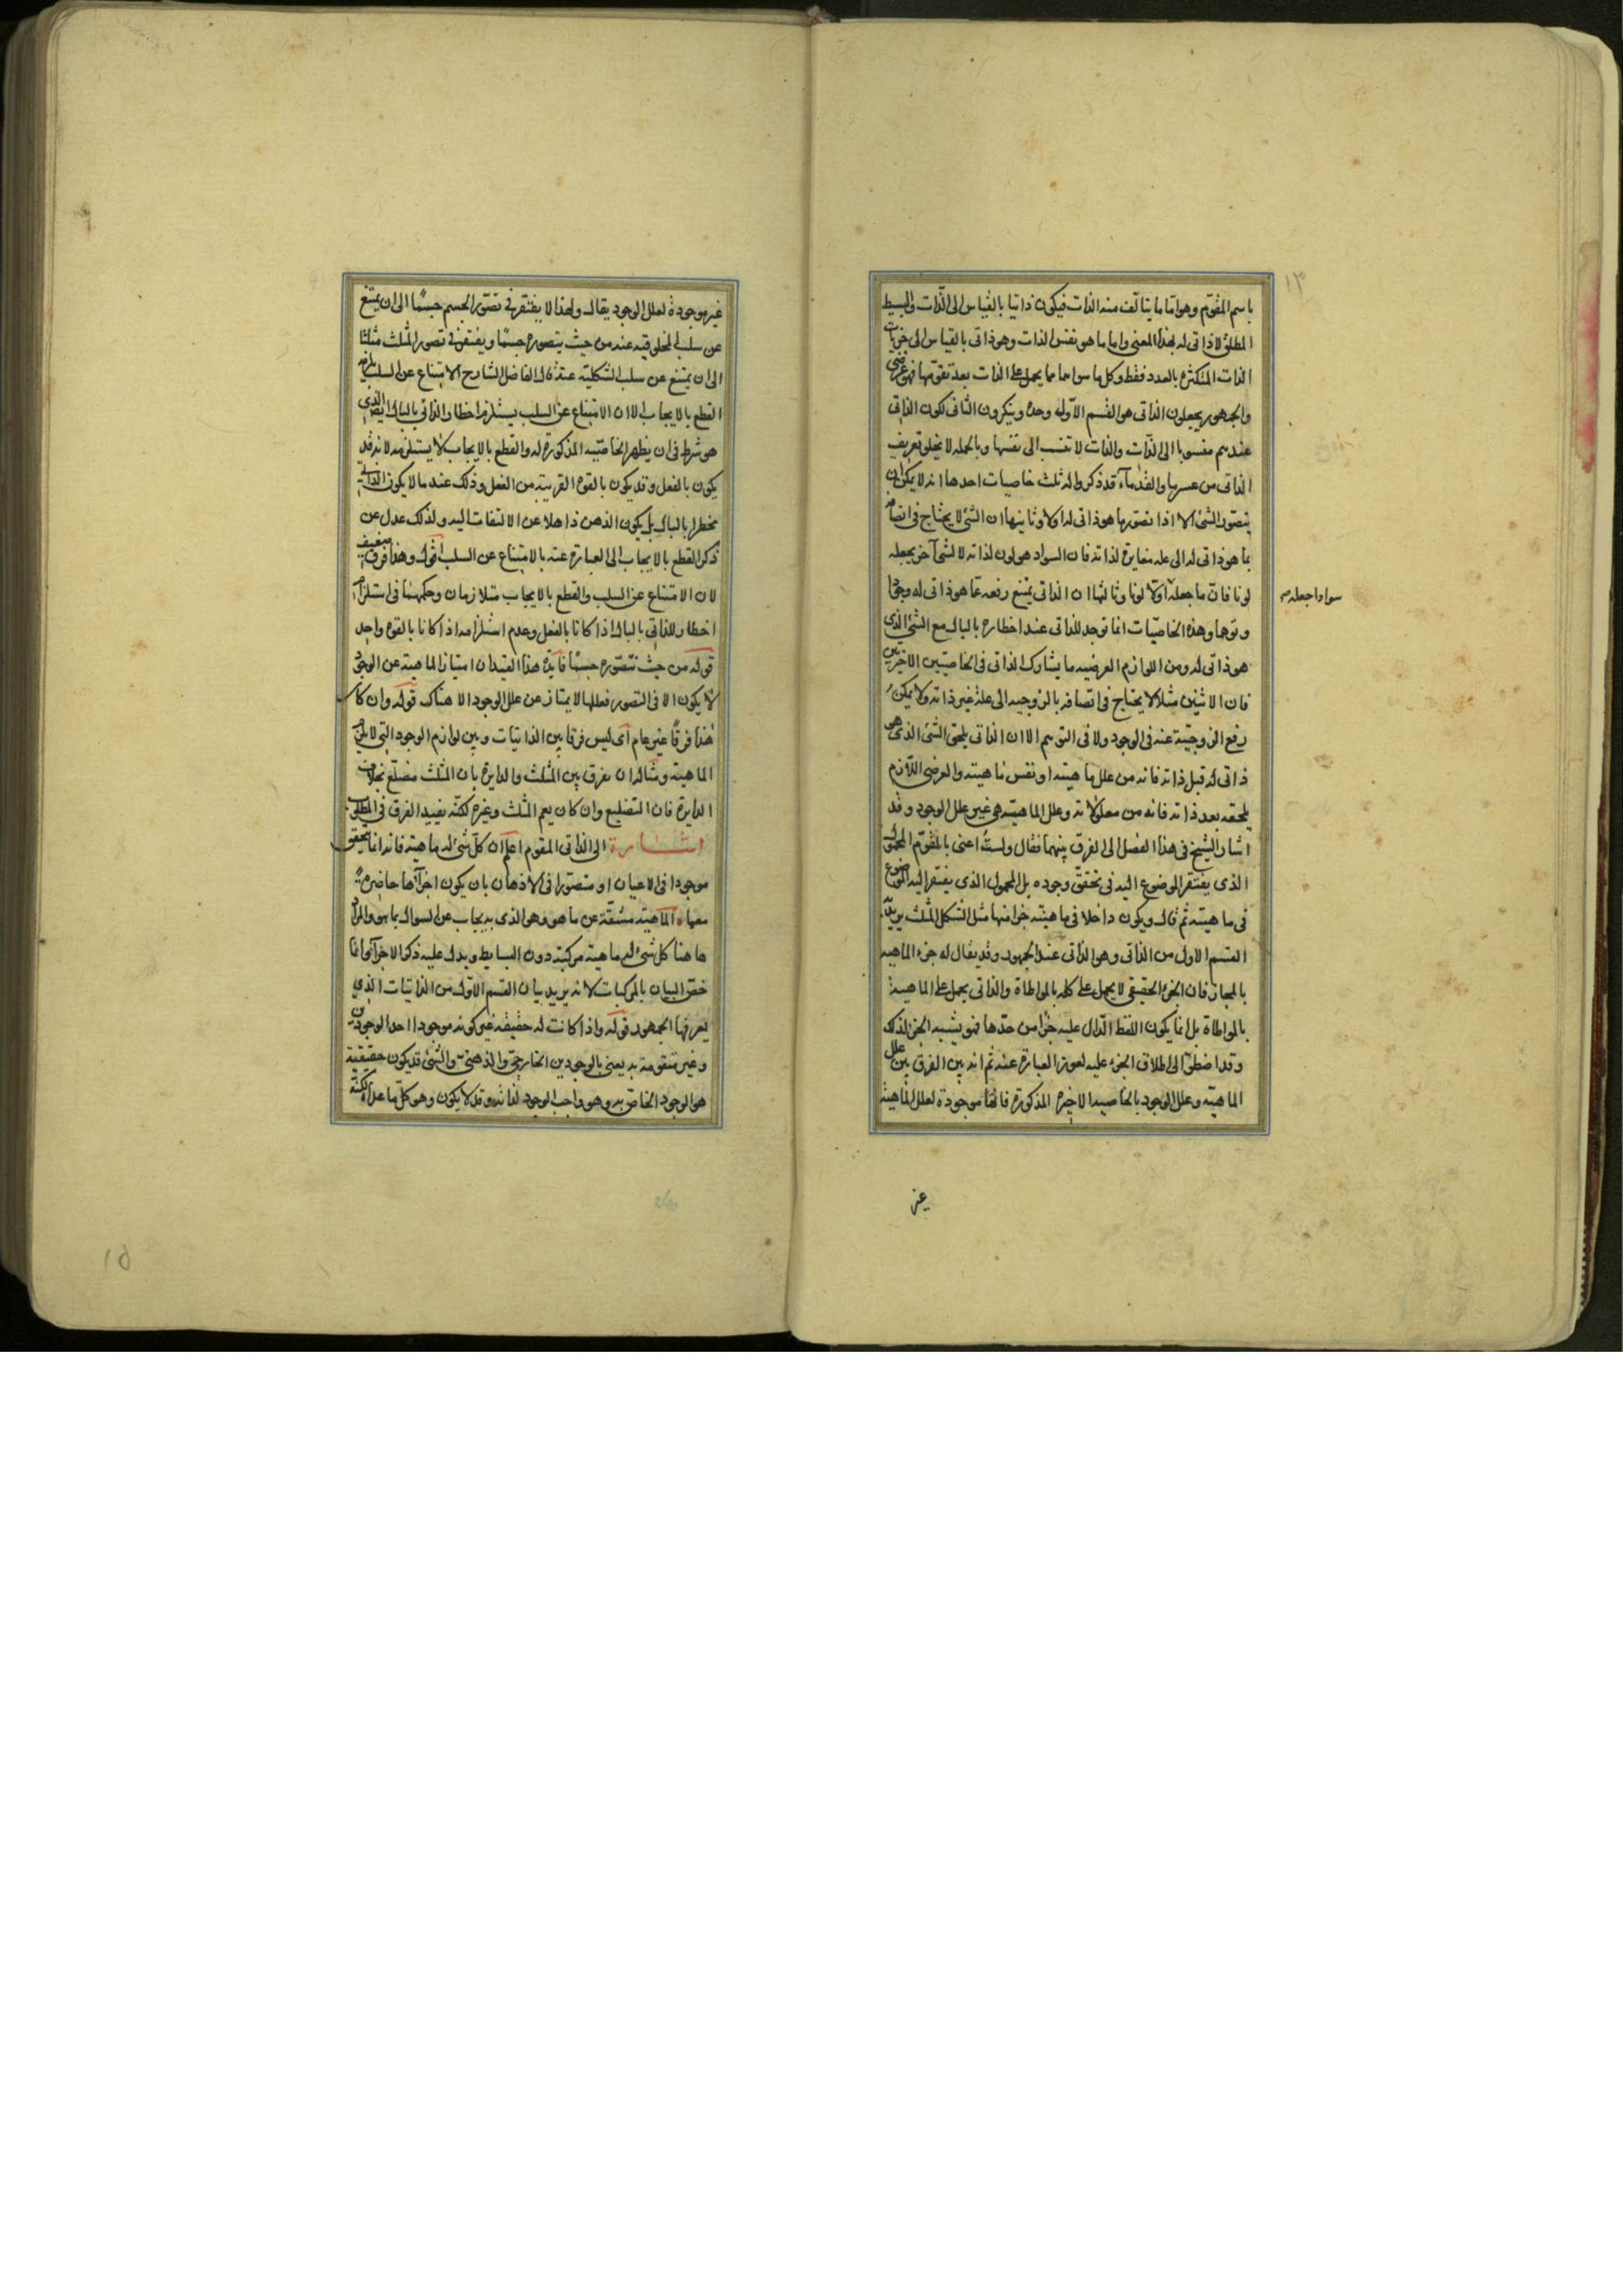 باسم المقوم وهو اما ما يتالف منه الذات فيكون ذاتيا بالقياس الى الذات والبسيط
المطلق لا ذاتى له بهذا المعنى واما ما هو نفس الذات وهو ذاتى بالقياس الى جزئيات
الذات المتكثرة بالعدد فقط وكل ما سواهما مما يحمل على الذات بعد تقومها فهو عرضى
والجمهور يجعلون الذاتى هو القسم الاول وحده وينكرون الثانى لكون الذاتى
عندهم منسوبا الى الذات والذات لا تنسب الى نفسها وبالجملة لا يخلو تعريف
الذاتى من عسر ما والقدماء قد ذكروا له ثلث خاصيات احدها انه لا يمكن ان
يتصور الشئ الا اذا تصور ما هو ذاتى له اولا وثانيها ان الشئ لا يحتاج فى اتصافه
بما هو ذاتى له الى علة مغايرة لذاته فان السواد هو لون لذاته لا لشئ آخر يجعله
لونا فان ما جعله اولا لونا وثالثها ان الذاتى يمتنع رفعه عما هو ذاتى له وجودا
سوادا جعله
وتوهما وهذه الخاصيات انما توجد للذاتى عند اخطاره بالبال مع الشئ الذى
هو ذاتى له ومن اللوازم العرضيه ما يشارك الذاتى فى الخاصيتين الاخيرتين
فان الاثنين مثلا لا يحتاج فى اتصافه بالزوجيه الى علة غير ذاته ولا يمكن
رفع الزوجية عنه فى الوجود ولا فى التوهم الا ان الذاتى يلحق الشئ الذى هو
ذاتى له قبل ذاته فانه من علل ماهيته او نفس ماهيته والعرضى اللازم
يلحقه بعد ذاته فانه من معلولاته وعلل الماهية هى غير علل الوجود وقد
اشار الشيخ فى هذا الفصل الى الفرق بينهما فقال ولست اعنى بالمقوم المحمول
الذى يفتقر الموضوع اليه فى تحقق وجوده بل المحمول الذى يفتقر اليه الموضوع
فى ماهيته ثم قال ويكون داخلا فى ماهيته جزا منها مثل الشكل للمثلث يريد به
القسم الاول من الذاتى وهو الذاتى عند الجمهور وقد يقال له جزء الماهيه
بالمجاز فان الجزء الحقيقى لا يحمل على كله بالمواطاة والذاتى يحمل على الماهية
بالمواطاة بل انما يكون اللفظ الدال عليه جزا من حدها فهو يشبه الجزء لذلك
وقد اضطر الى اطلاق الجزء عليه لعوز العبارة عنه ثم انه بين الفرق بين علل
الماهيه وعلل الوجود بالخاصيه الاخيره المذكورة فانها موجودة لعلل الماهية
غير
غير موجودة لعلل الوجود يقال ولهذا لا يفتقر فى تصور الجسم جسما الى ان يمتنع
عن سلب المخلوقيه عنه من حيث يتصوره جسما ويفتقر فى تصور المثلث مثلثا
الى ان يمتنع عن سلب الشكلية عنه قال الفاضل الشارح الامتناع عن السلب
القطع بالايجاب الا ان الامتناع عن السلب يستلزم اخطار الذاتى بالبال ايضا الذى
هو شرط فى ان يظهر الخاصيه المذكورة له والقطع بالايجاب لا يستلزمه لانه قد
يكون بالفعل وقد يكون بالقوه القريبة من الفعل وذلك عند ما لا يكون الذاتى
مخطرا بالبال بل يكون الذهن ذاهلا عن الالتفات اليه ولذلك عدل عن
ذكر القطع بالايجاب الى العبارة عنه بالامتناع عن السلب اقول وهذا فرق ضعيف
لان الامتناع عن السلب والقطع بالايجاب متلازمان وحكمهما فى استلزام
اخطار الذاتى بالبال اذا كانا بالفعل وعدم استلزامه اذا كانا بالقوه واحد
قوله من حيث تتصوره جسما فايدة هذا القيد ان امتياز الماهية عن الوجود
لا يكون الا فى التصور فعللها لا يمتاز عن علل الوجود الا هناك قوله وان كان
هذا فرقا غير عام اى ليس فرقا بين الذاتيات وبين لوازم الوجود التى لا يلزم
الماهية ومثاله ان يفرق بين المثلث والدايرة بان المثلث مضلع بخلاف
الدايرة فان التضليع وان كان يعم المثلث وغيره لكنه يفيد الفرق فى المطلوب
اشارة الى الذاتى المقوم اعلم ان كل شئ له ماهية فانه انما يتحقق
موجودا فى الاعيان او متصورا فى الاذهان بان يكون اجزآؤها حاضرة
معها الماهية مشتقة عن ما هو وهو الذى به يجاب عن السوال بما هو والمراد
هاهنا كل شئ له ماهية مركبة دون البسايط ويدل عليه ذكر الاجزآء وانما
خص البيان بالمركبات لانه يريد بيان القسم الاول من الذاتيات الذى
يعرفها الجمهور قوله واذا كانت له حقيقة غير كونه موجودا احد الوجودين
وغير متقومة به يعنى بالوجودين الخارجى والذهنى والشئ قد يكون حقيقية
هو الوجود الخاص به وهو واجب الوجود لذاته وقد لا يكون وهو كل ما عداه لكنه